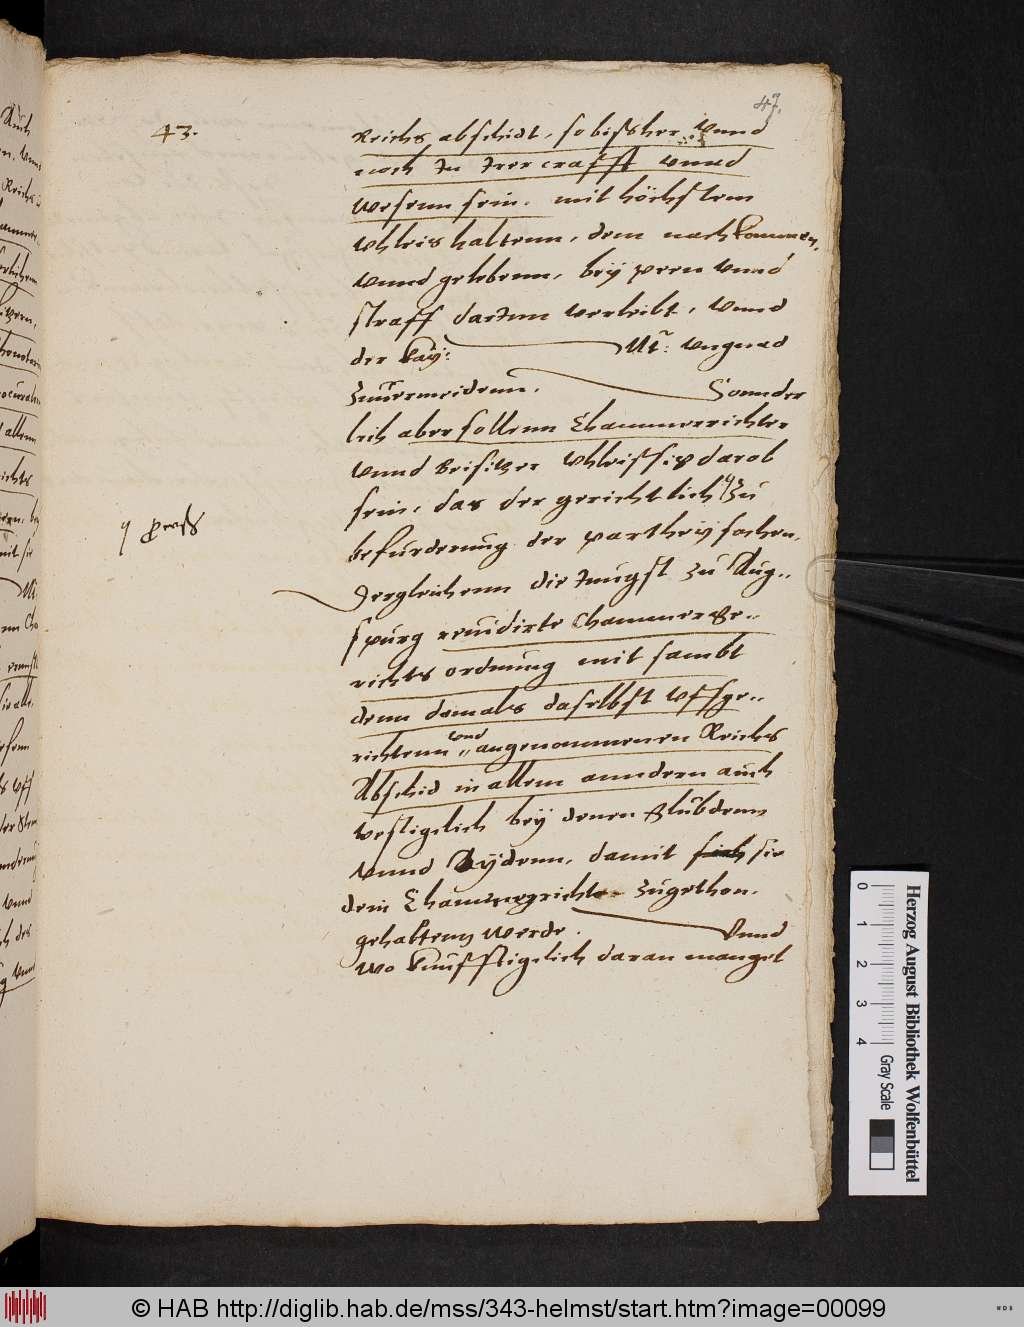 47.
43.
Reichs abschidt, so bissher vnnd
noch in irer crafft vnnd
wesenn sein, mit höchstem
vhleis haltenn, dem nachkommen,
vnnd gelebenn, bey peen vnnd
straff darinn verleibt, vnnd
der Kay: Mt: vngnad
zuuermeidenn. Sonnder
lich aber sollenn Chammerrichter
vnnd Beisitzer vhleissig darob
sein, das der gerichtlich zu
befurderung der partheij sachen,
dergleichenn die iungst zu Aug-
spurg reuidirte Chammerge-
richts ordnung mit sambt
denn damals daselbst vffge-
richtenn vnd angenommenen Reichs
Abschid in allem anndern auch
vestiglich bey denen glübdenn
vnnd Aydenn, damit sich sie
dem Chammergericht zugethon,
gehaltenn werde. Vnnd
wo kunfftiglich daran mangel
process
Herzog August Bibliothek Wolfenbüttel
0 1 2 3 4
Gray Scale
© HAB http://diglib.hab.de/mss/343-helmst/start.htm?image=00099